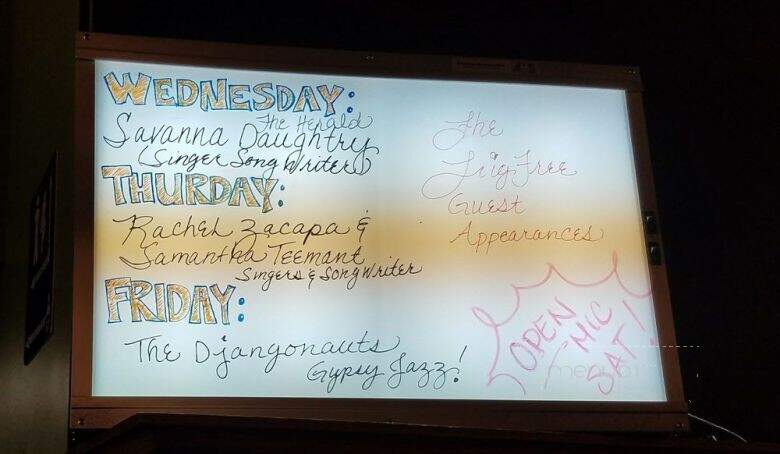 WEDNESDAY:
The Herald
Savanna Daughtry
(Singer Song Writer)
THURDAY:
Rachel Zacapa &
Samantha Teemant
Singers & Song Writer
FRIDAY:
The Djangonauts
Gypsy Jazz!
The
Fig Tree
Guest
Appearances
OPEN
MIC
SAT!